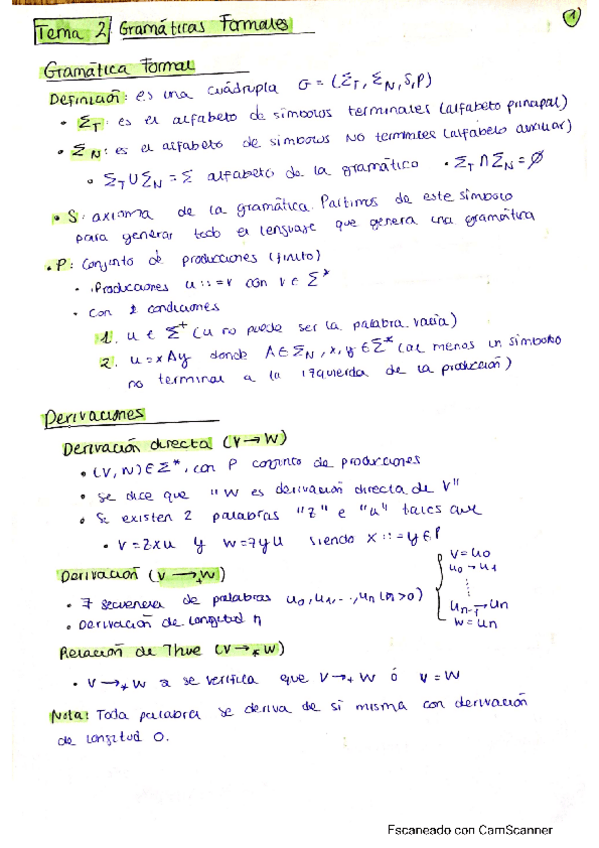 Tema 2 Gramáticas Formales
1
Gramática Formal
Definición: es una cuádrupla G = (Σ_T, Σ_N, S, P)
• Σ_T: es el alfabeto de símbolos terminales (alfabeto principal)
• Σ_N: es el alfabeto de símbolos NO terminales (alfabeto auxiliar)
• Σ_T ∪ Σ_N = Σ alfabeto de la gramática • Σ_T ∩ Σ_N = Ø
• S: axioma de la gramática. Partimos de este símbolo
para generar todo el lenguaje que genera una gramática
• P: Conjunto de producciones (finito)
• Producciones u ::= v con v ∈ Σ*
• Con 2 condiciones
1. u ∈ Σ+ (u no puede ser la palabra vacía)
2. u = xAy donde A ∈ Σ_N, x, y ∈ Σ* (al menos un símbolo
no terminal a la izquierda de la producción)
Derivaciones
Derivación directa (V → W)
• (V, W) ∈ Σ*, con P conjunto de producciones
• se dice que "W es derivación directa de V"
• Si existen 2 palabras "z" e "u" tales que
• V = zxu y W = zyu siendo x ::= y ∈ P
Derivación (V →+ W)
• ∃ secuencia de palabras u0, u1, ..., un (n>0)
• Derivación de longitud n
V = u0
u0 → u1
un-1 → un
W = un
Relación de Thue (V →* W)
• V →* W se verifica que V →+ W ó V = W
Nota: Toda palabra se deriva de si misma con derivación
de longitud 0.
Escaneado con CamScanner